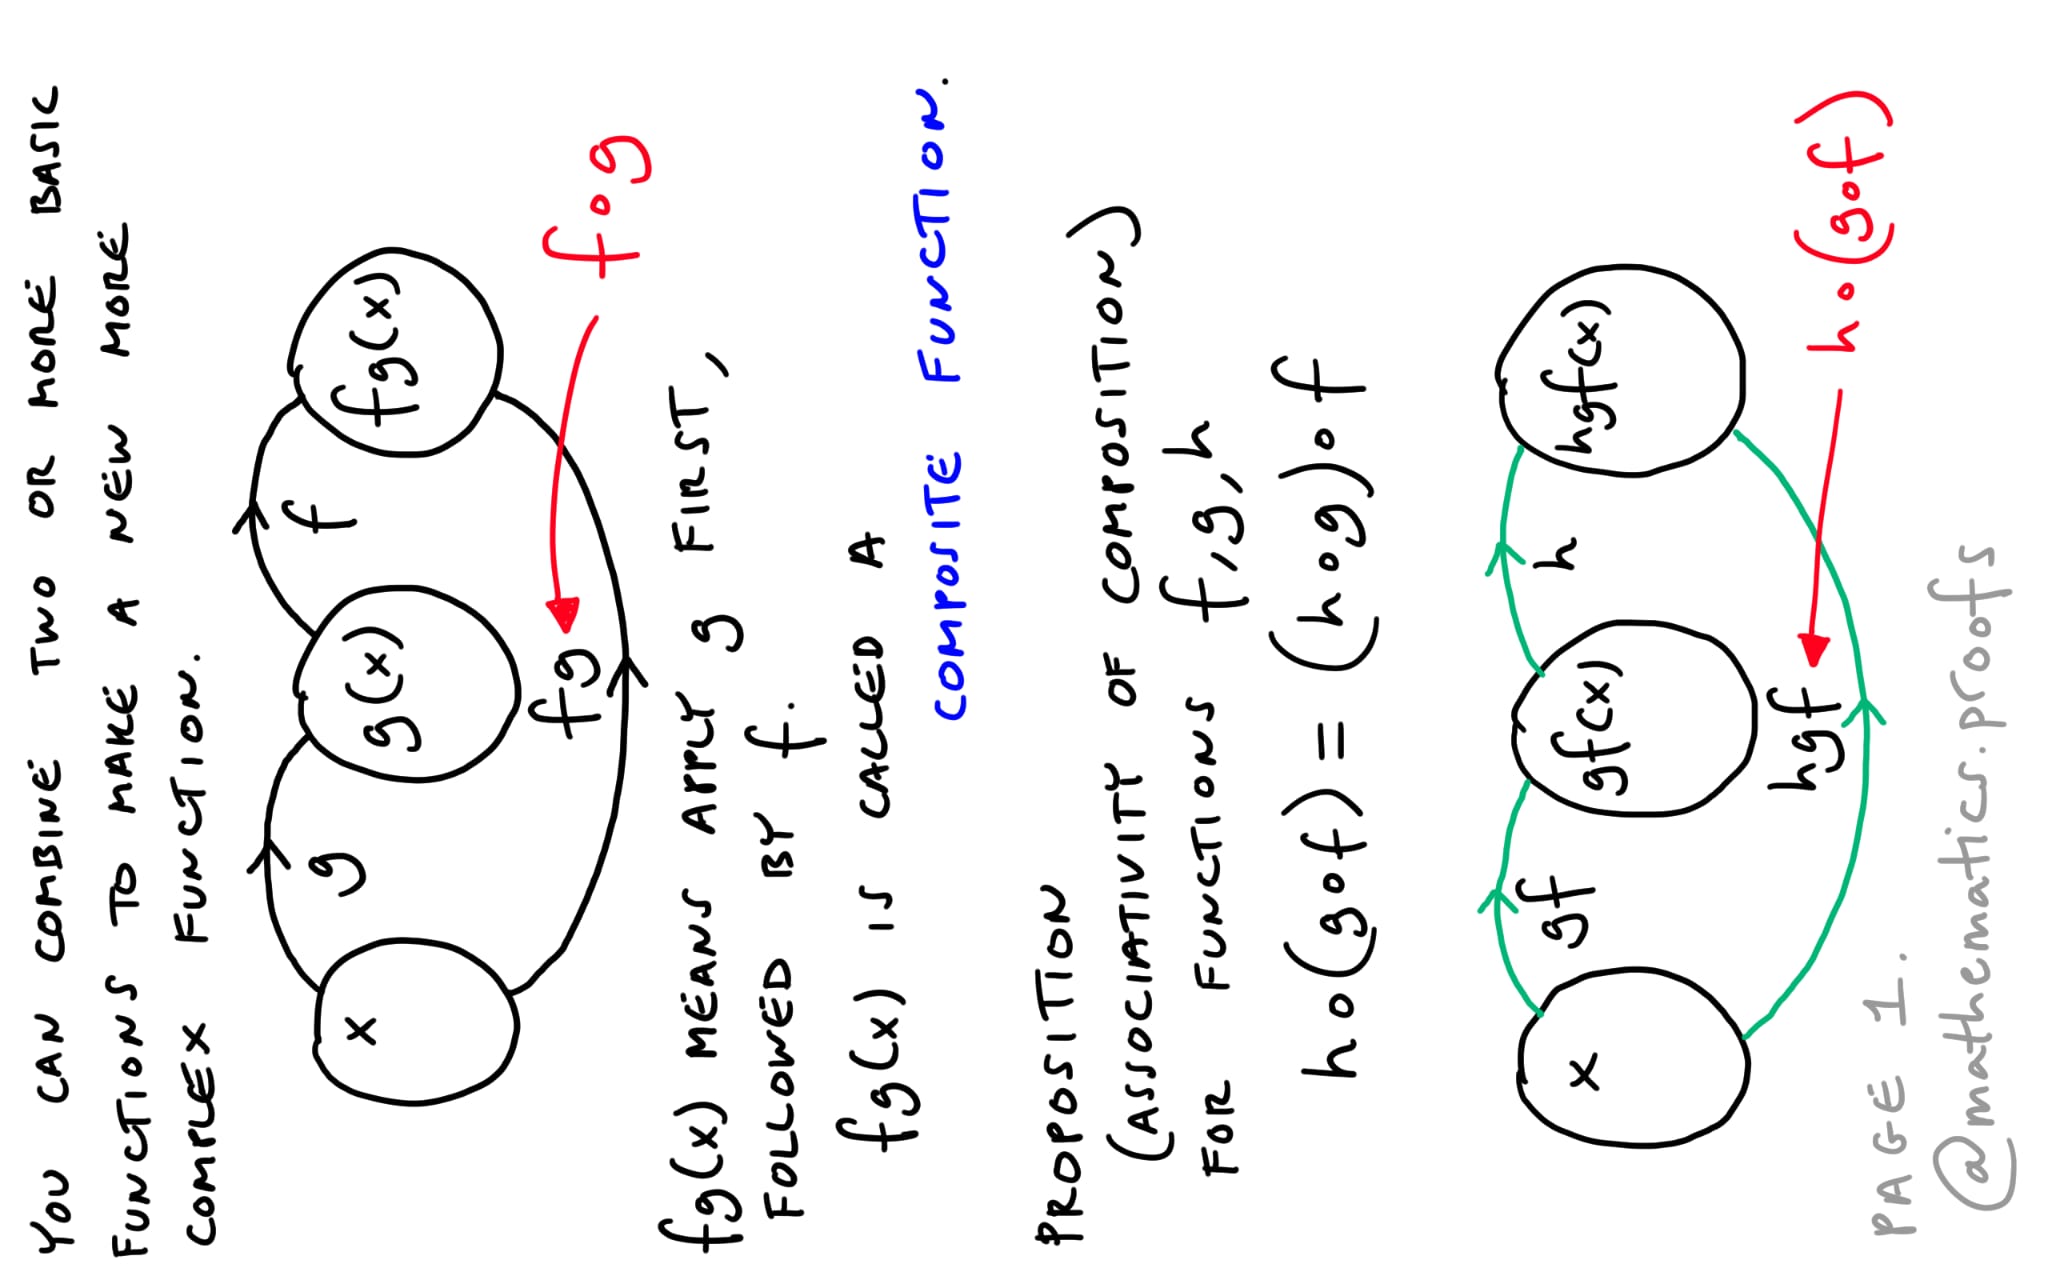 YOU CAN COMBINE TWO OR MORE BASIC
FUNCTIONS TO MAKE A NEW MORE
COMPLEX FUNCTION.
g f
x g(x) fg(x)
fg fog
fg(x) MEANS APPLY g FIRST,
FOLLOWED BY f.
fg(x) IS CALLED A
COMPOSITE FUNCTION.
PROPOSITION
(ASSOCIATIVITY OF COMPOSITION)
FOR FUNCTIONS f, g, h
h∘(g∘f) = (h∘g)∘f
gf h
x gf(x) hgf(x)
hgf h∘(g∘f)
PAGE 1.
@mathematics.proofs